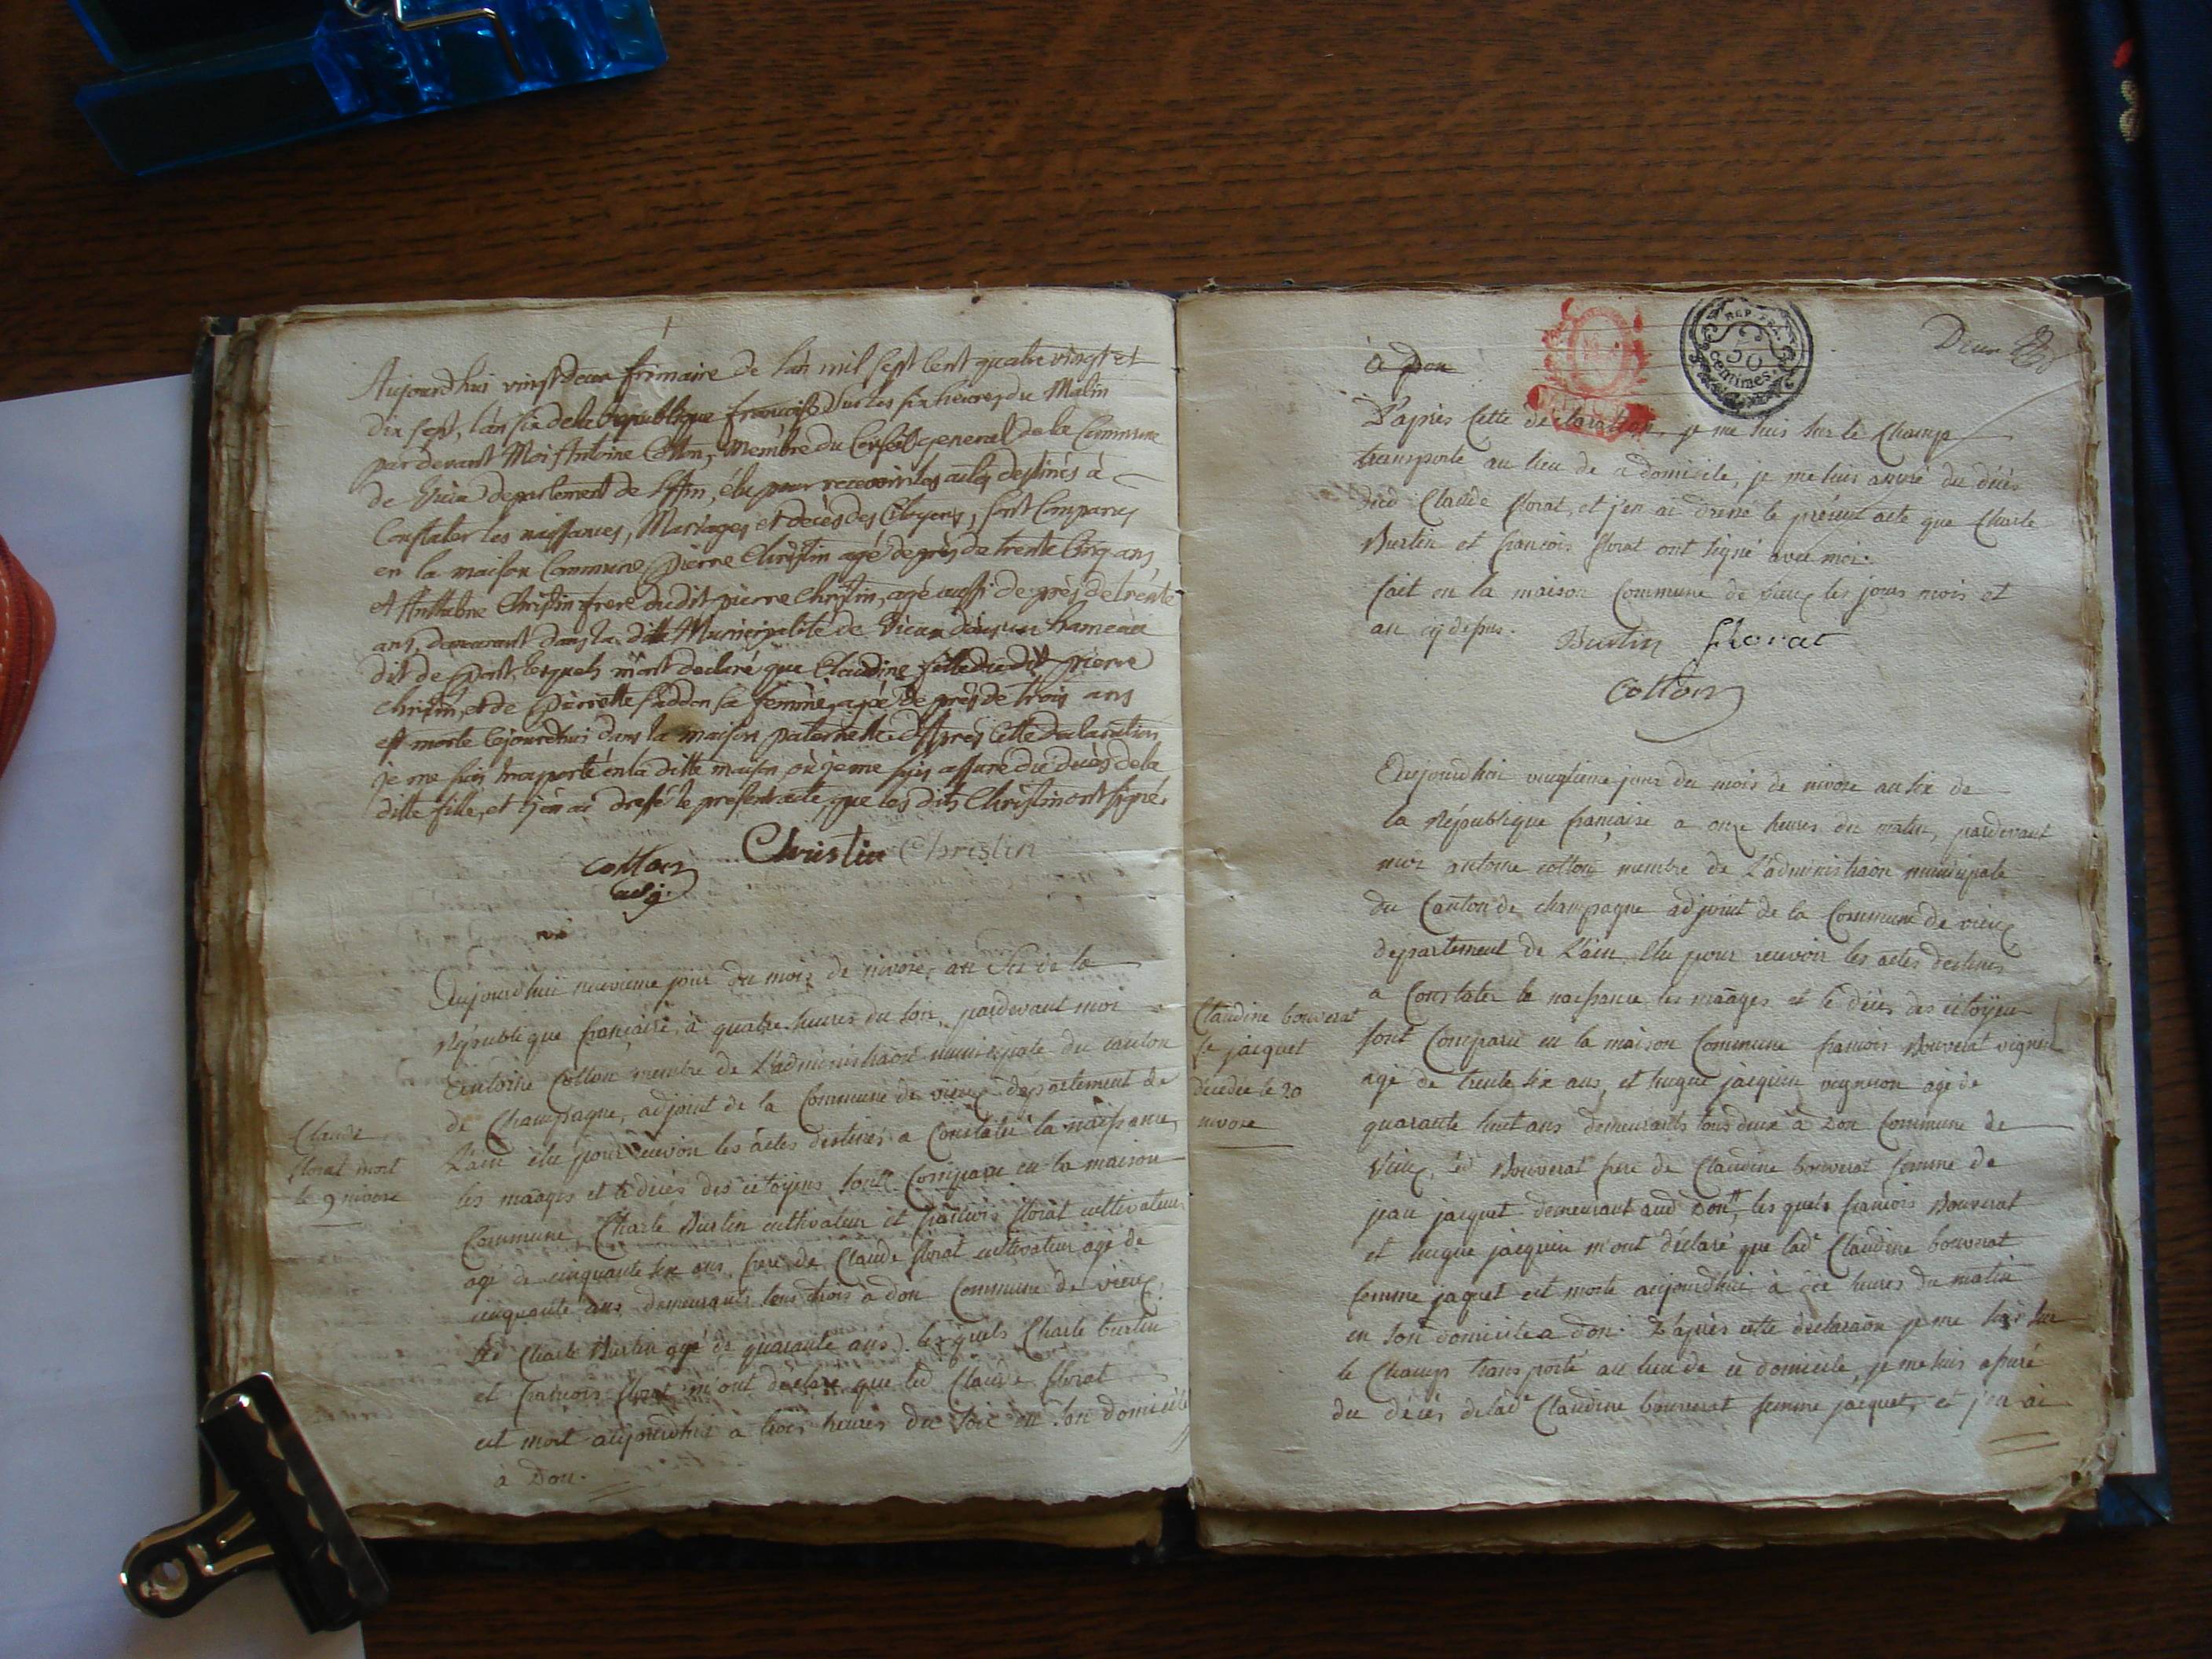 Aujourdhui vingt deux frimaire de l'an mil sept cent quatre vingt et
dix sept, l'an six de la Republique française sur les six heures du Matin
par devant Moi Antoine Cotton, Membre du Conseil general de la Commune
de Vieu departement de l'Ain, élu pour recevoir les actes destinés à
Constater les naissances, Mariages et décès des Citoyens, sont Comparus
en la maison Commune, Pierre Christin agé de près de trente Cinq ans,
et Anthelme Christin frere du dit pierre Christin, agé aussi de près de trente
ans, demeurant dans la ditte Municipalité de Vieu dans un hameau
dit de Dont, lesquels m'ont declaré que Claudine fille du dit pierre
Christin, et de Pierrette sa femme, agée de près de trois ans
est morte cejourdhui dans la maison paternelle. D'Après Cette declaration
je me suis trasporté en la ditte maison où je me suis assuré du décès de la
ditte fille, et j'en ai dressé le present acte que les dits Christin ont signé.
Christin Christin
Cotton
adj.
ni
Aujourdhui neuvieme jour du mois de nivose, an Six de la
République française, à quatre heures du soir, pardevant moi
Antoine Cotton membre de L'administraon municipale du canton
de Champagne, adjoint de la Commune de vieux departement de
L'ain élu pour recevoir les actes destinés a Constater la naissance,
les maages et le décès des citoyens sont Comparu en la maison
Commune, Charle Burtin cultivateur et francois florat cultivateur
agé de cinquante six ans, frere de Claude florat cultivateur agé de
cinquante ans demeurants tous trois à don Commune de vieux,
led Charle Burtin agé de quarante ans) lesquels Charle burtin
et francois florat m'ont declaré que led Claude florat
est mort aujourdhui à trois heures du soir en son domicile
à Don.
Claude
florat mort
le 9 nivose
à Don
D'après Cette declaration, je me suis sur le Champ
transporté au lieu de domicile, je me suis assuré du décès
dud Claude florat, et j'en ai dressé le présent acte que Charle
Burtin et francois florat ont signé avec moi.
fait en la maison Commune de vieux les jours mois et
an cy dessus.
Burtin florat
Cotton
REP. FRA.
50
centimes.
Deux
Aujourdhui vingtieme jour du mois de nivose an six de
la République française a onze heures du matin, pardevant
moi antoine cotton membre de L'administraon municipale
du Canton de champagne adjoint de la Commune de vieux
departement de L'ain, élu pour recevoir les actes destines
a Constater la naissance les maages et le décès des citoyens
sont Comparu en la maison Commune francois Bouverat vigneron
agé de trente six ans, et hugue jacquin vigneron agé de
quarante huit ans demeurants tous deux à Don Commune de
vieux, led Bouverat frere de Claudine bouverat femme de
jean jacquet demeurant aud Don, les quels francois Bouverat
et hugue jacquin m'ont déclaré que lade Claudine bouverat
femme jaquet est morte aujourdhui à dix heures du matin
en son domicile a don. D'après cette declaraon je me suis sur
le Champ transporté au lieu de ce domicile, je me suis assuré
du décès de lade Claudine bouverat femme jacquet, et j'en ai
Claudine bouverat
fe jacquet
décédée le 20
nivose